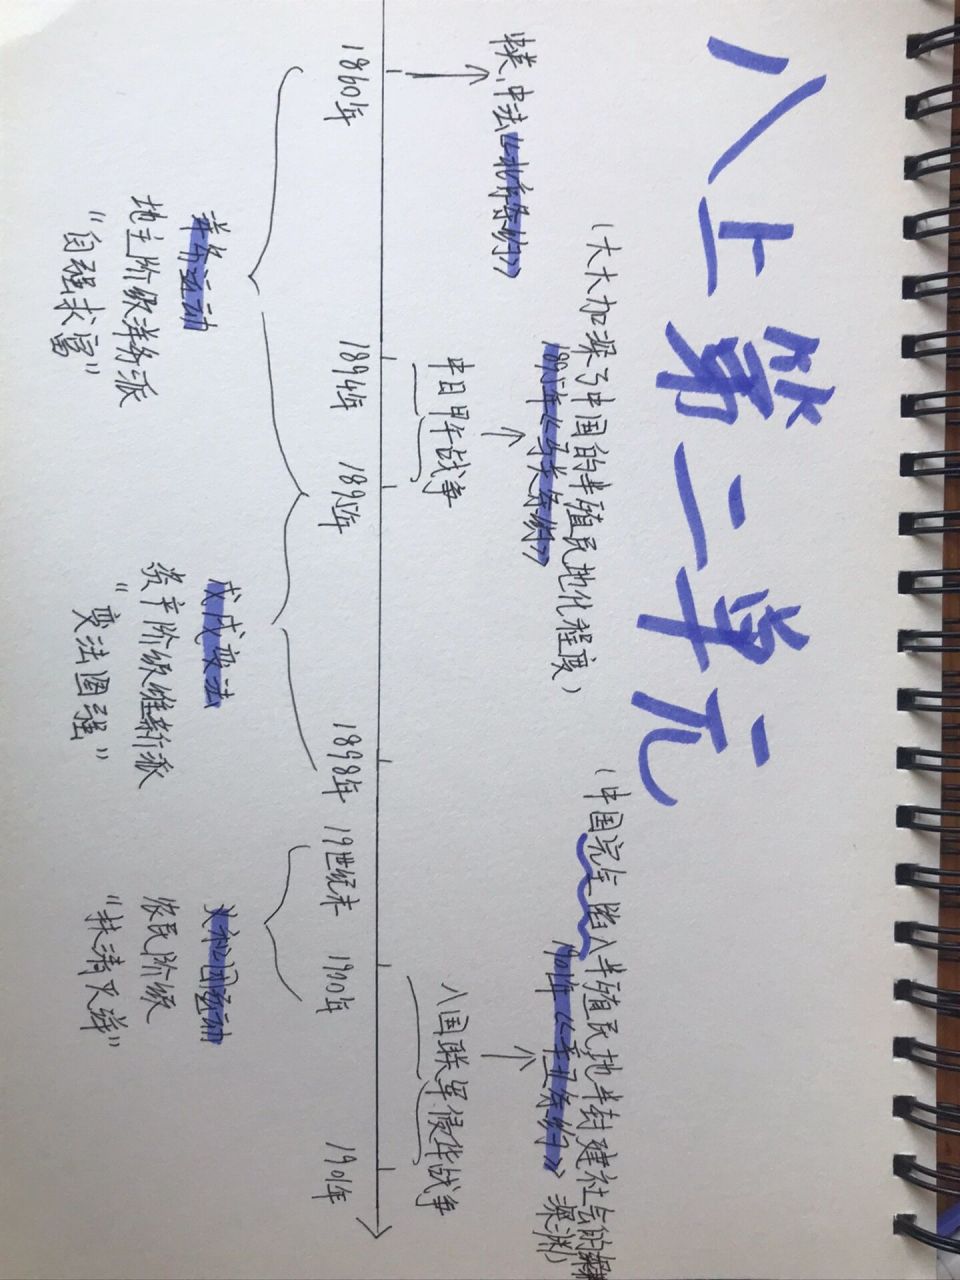 八上第二单元
(大大加深了中国的半殖民地化程度)
(中国完全陷入半殖民地半封建社会的
深渊)
中英、中法《北京条约》
1895年《马关条约》
1901年《辛丑条约》
中日甲午战争
八国联军侵华战争
1860年
1894年
1895年
1898年
19世纪末
1900年
1901年
洋务运动
戊戌变法
义和团运动
地主阶级洋务派
资产阶级维新派
农民阶级
"自强求富"
"变法图强"
"扶清灭洋"